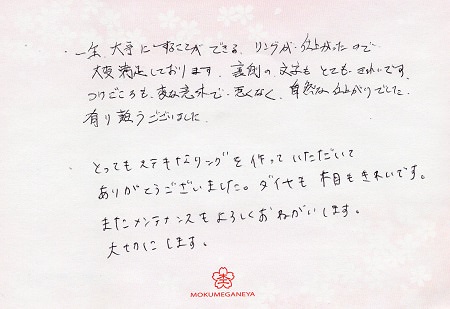 ・一生大事にすることができるリングが仕上がったので
大変満足しております。裏側の文字もとてもきれいです。
つけごこちも、変な意味で悪くなく、自然な仕上がりでした。
有り難うございました
・とってもステキなリングを作っていただいて
ありがとうございました。ダイヤも木目もきれいです。
またメンテナンスもよろしくおねがいします。
大切にします。
MOKUMEGANEYA